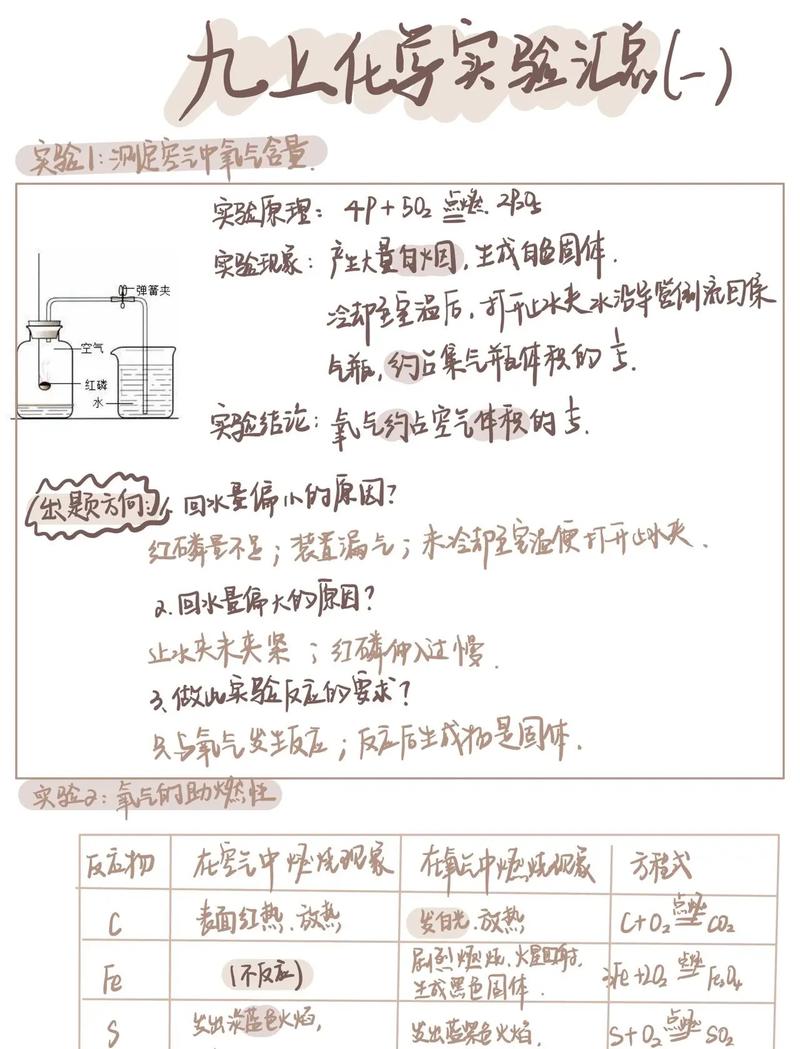 九上化学实验汇总(一)
实验1:测定空气中氧气含量.
实验原理: 4P+5O₂ 点燃 2P₂O₅
实验现象: 产生大量白烟,生成白色固体.
冷却至室温后,打开止水夹水沿导管倒流回集
气瓶,约占集气瓶体积的1/5.
实验结论: 氧气约占空气体积的1/5.
弹簧夹
空气
红磷
水
出题方向: 1. 回水量偏小的原因?
红磷量不足;装置漏气;未冷却至室温便打开止水夹.
2.回水量偏大的原因?
止水夹未夹紧;红磷伸入过慢.
3、做此实验反应的要求?
只与氧气发生反应;反应后生成物是固体.
实验2:氧气的助燃性
反应物 在空气中燃烧现象 在氧气中燃烧现象 方程式
C 表面红热.放热 发白光.放热 C+O₂ 点燃 CO₂
Fe (不反应) 剧烈燃烧,火星四射, 3Fe+2O₂ 点燃 Fe₃O₄
生成黑色固体.
S 发出淡蓝色火焰, 发出蓝紫色火焰, S+O₂ 点燃 SO₂